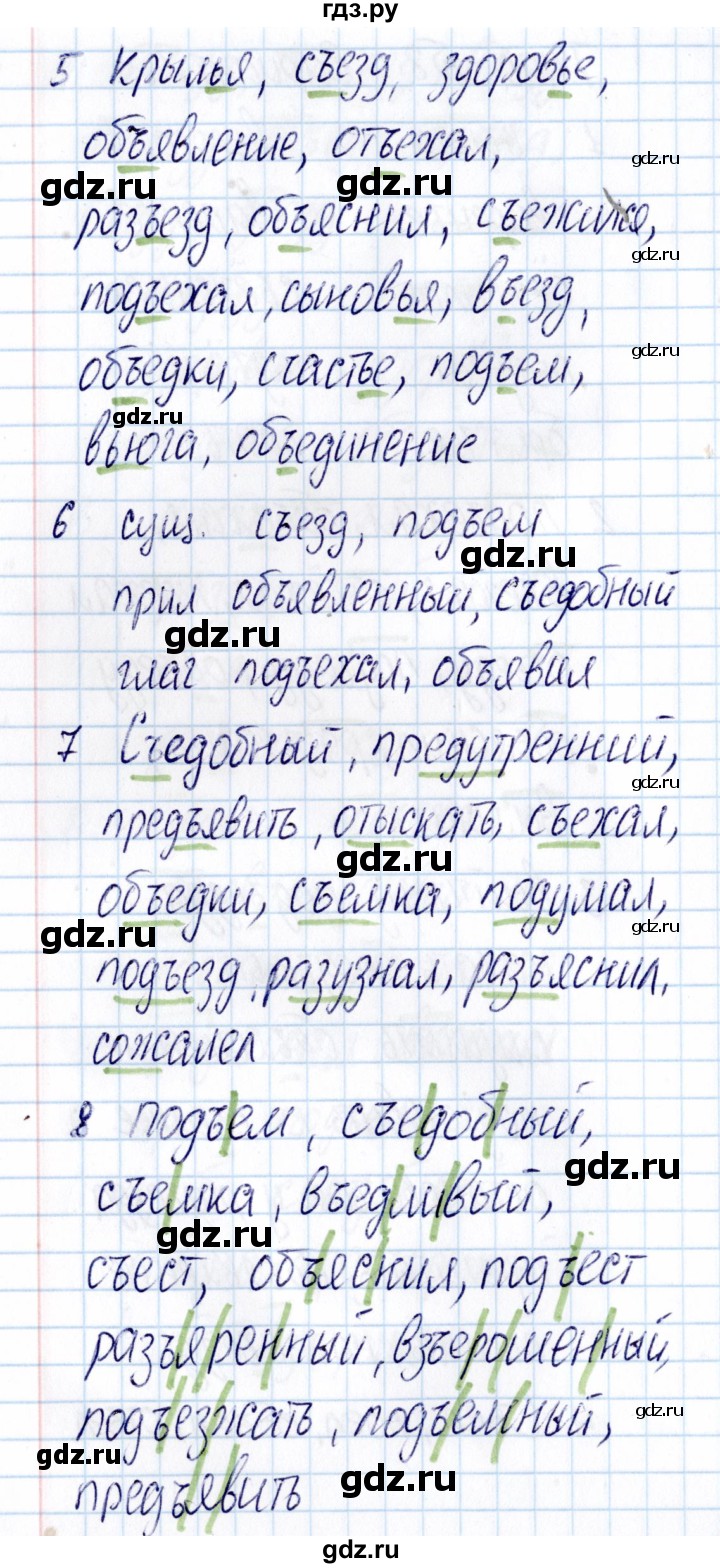 гдз.ру
5 Крылья, съезд, здоровье,
объявление, отъехал,
gdz.ru
gdz.ru
gdz.ru
разъезд, объяснил, съежился,
gdz.ru
подъехал, сыновья, въезд,
gdz.ru
объедки, счастье, подъем,
gdz.ru
вьюга, объединение
6 сущ. съезд, подъем
gdz.ru
прил объявленный, съедобный
gdz.ru
глаг подъехал, объявил
7 Съедобный, предутренний,
gdz.ru
предъявить, отыскать, съехал,
gdz.ru
объедки, съемка, подумал,
gdz.ru
gdz.ru
подъезд, разузнал, разъяснил,
сожалел
8 подъем, съедобный,
gdz.ru
съемка, въедливый,
gdz.ru
съест, объяснил, подъест
разъяренный, взъерошенный,
gdz.ru
подъезжать, подъемный,
gdz.ru
gdz.ru
предъявить
gdz.ru